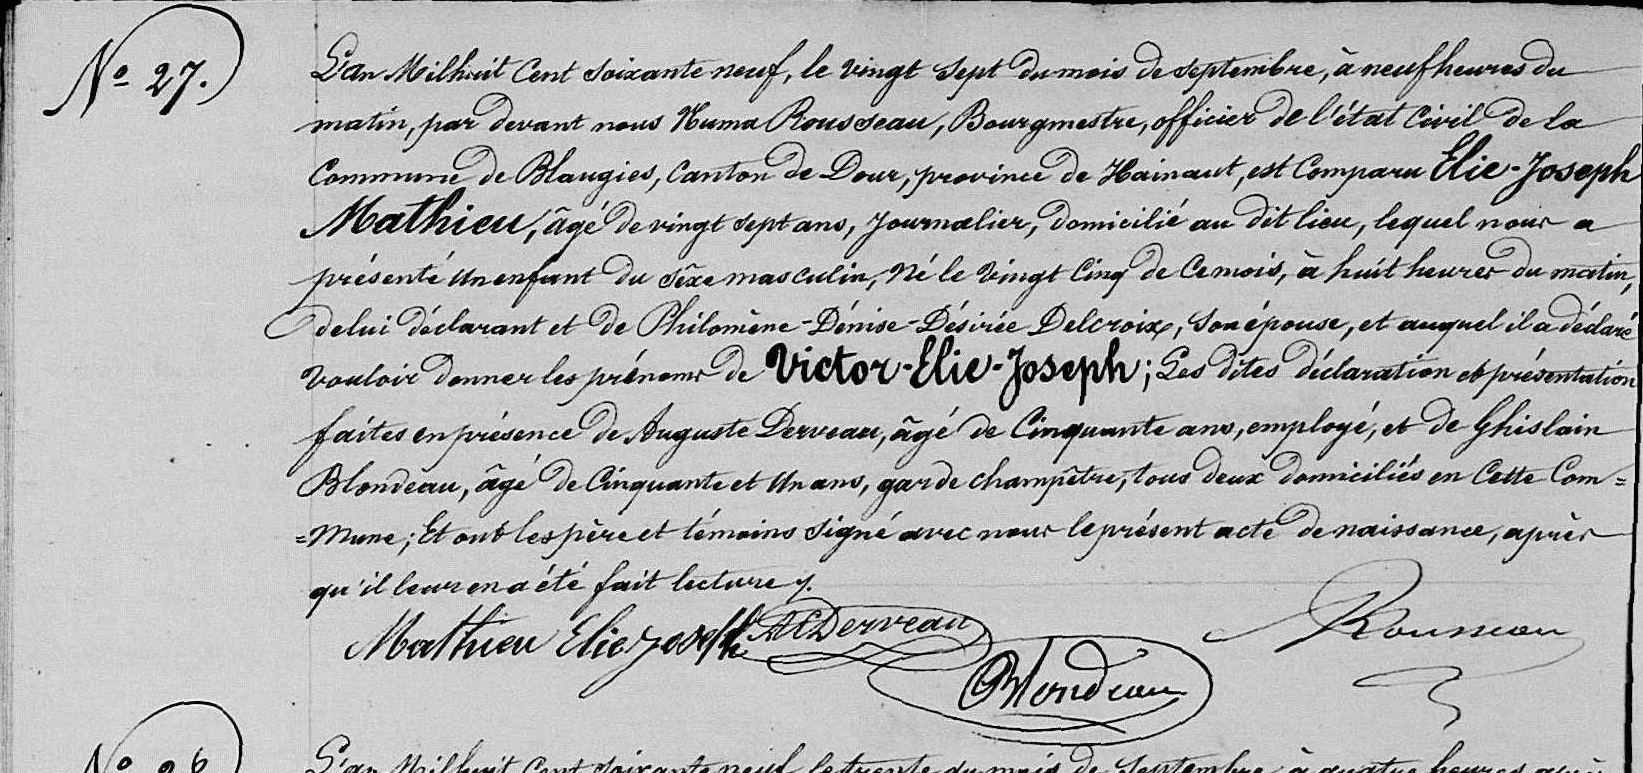 N° 27.
L'an Milhuit Cent soixante neuf, le vingt sept du mois de septembre, à neuf heures du
matin, par devant nous Numa Rousseau, Bourgmestre, officier de l'état Civil de la
Commune de Blaugies, Canton de Dour, province de Hainaut, est Comparu Elie-Joseph
Mathieu, âgé de vingt sept ans, Journalier, domicilié au dit lieu, lequel nous a
présenté un enfant du sêxe masculin, Né le vingt Cinq de Ce mois, à huit heures du matin,
de lui déclarant et de Philomène-Dénise-Désirée Delcroix, son épouse, et auquel il a déclaré
vouloir donner les prénoms de Victor-Elie-Joseph; Les dites déclaration et présentation
faites en présence de Auguste Derveau, âgé de Cinquante ans, employé, et de Ghislain
Blondeau, âgé de Cinquante et un ans, garde champêtre, tous deux domiciliés en Cette Com=
=Mune; Et ont les père et témoins signé avec nous le présent acte de naissance, après
qu'il leur en a été fait lecture /.
Mathieu Elie joseph AC Derveau Rousseau
Blondeau
N° 26
L'an Milhuit Cent soixante neuf le trente du mois de Septembre à quatre heures